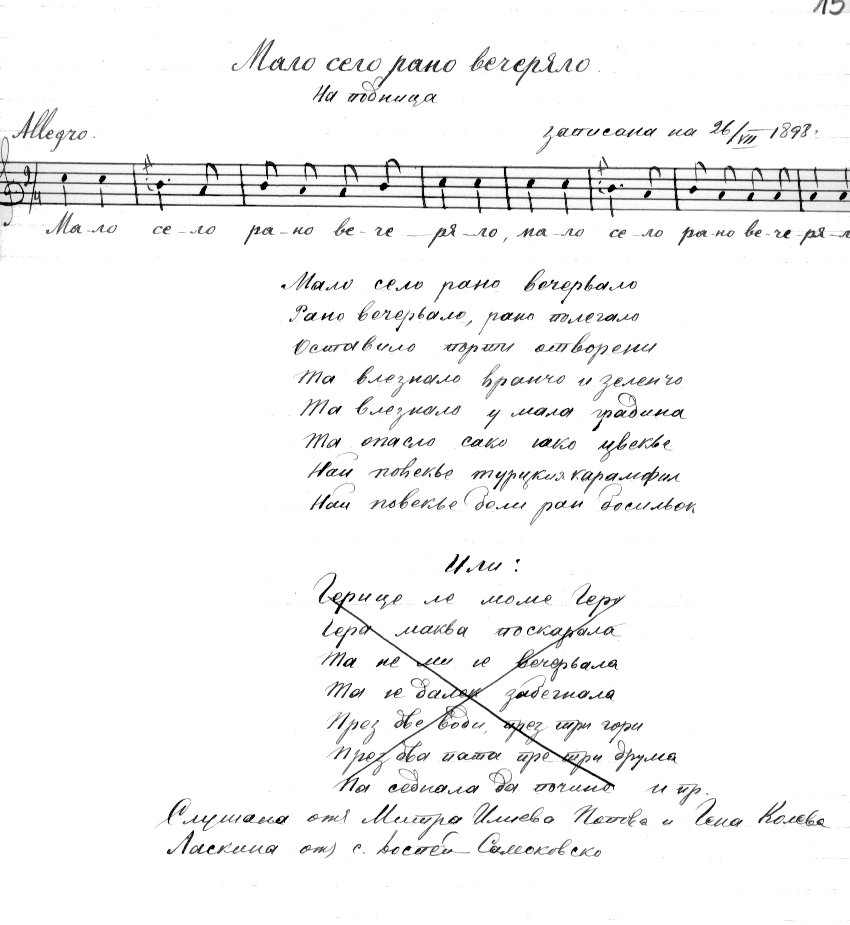 15
Мало село рано вечеряло.
На подница
Allegro.
записана на 26/VII 1898.
Ма-ло се-ло ра-но ве-че-ря-ло, ма-ло се-ло ра-но ве-че-ря-л
Мало село рано вечерьало
Рано вечерьало, рано полегало
Оставило порти отворени
Та влезнало вранчо и зеленчо
Та влезнало у мала градина
Та опасло сако јако цвекье
Наи повекье турцкия карамфил
Наи повекье бели ран босильок
Или:
Герице ле моме Геро
Гера маква поскарала
Та не ми је вечерьала
Та је далек забегнала
През две води, през три гори
През два пата пре три друма
Па седнала да почине и пр.
Слушана отъ Митра Илиева и Гена Колева
Ласкина отъ с. Самоковско